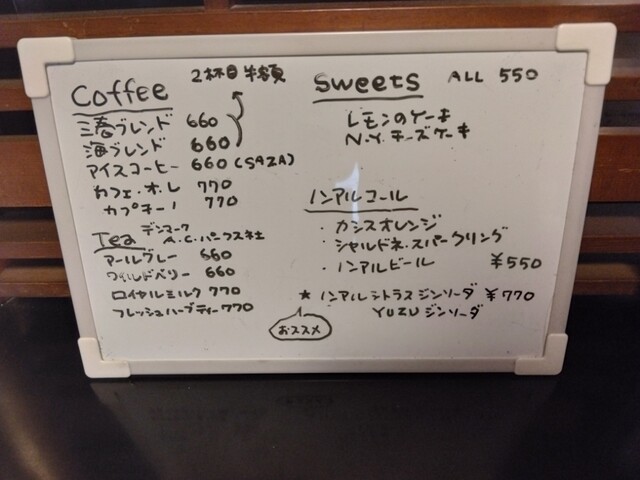 Coffee 2杯目半額
三春ブレンド 660
海ブレンド 660
アイスコーヒー 660 (SAZA)
カフェ・オ・レ 770
カプチーノ 770
Tea デンマーク A.C.パークス社
アールグレー 660
ワイルドベリー 660
ロイヤルミルク 770
フレッシュハーブティー 770
Sweets ALL 550
レモンのケーキ
N.Y.チーズケーキ
ノンアルコール
・カシスオレンジ
・シャルドネ・スパークリング
・ノンアルビール ¥550
★ノンアルシトラスジンソーダ ¥770
YUZUジンソーダ
おススメ